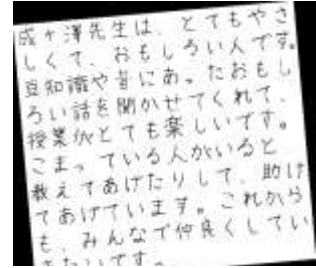 成ヶ澤先生は、とてもやさ
しくて、おもしろい人です。
豆知識や昔にあったおもし
ろい話を聞かせてくれて、
授業がとても楽しいです。
こまっている人がいると
教えてあげたりして、助け
てあげています。これから
も、みんなで仲良くしてい
きたいです。